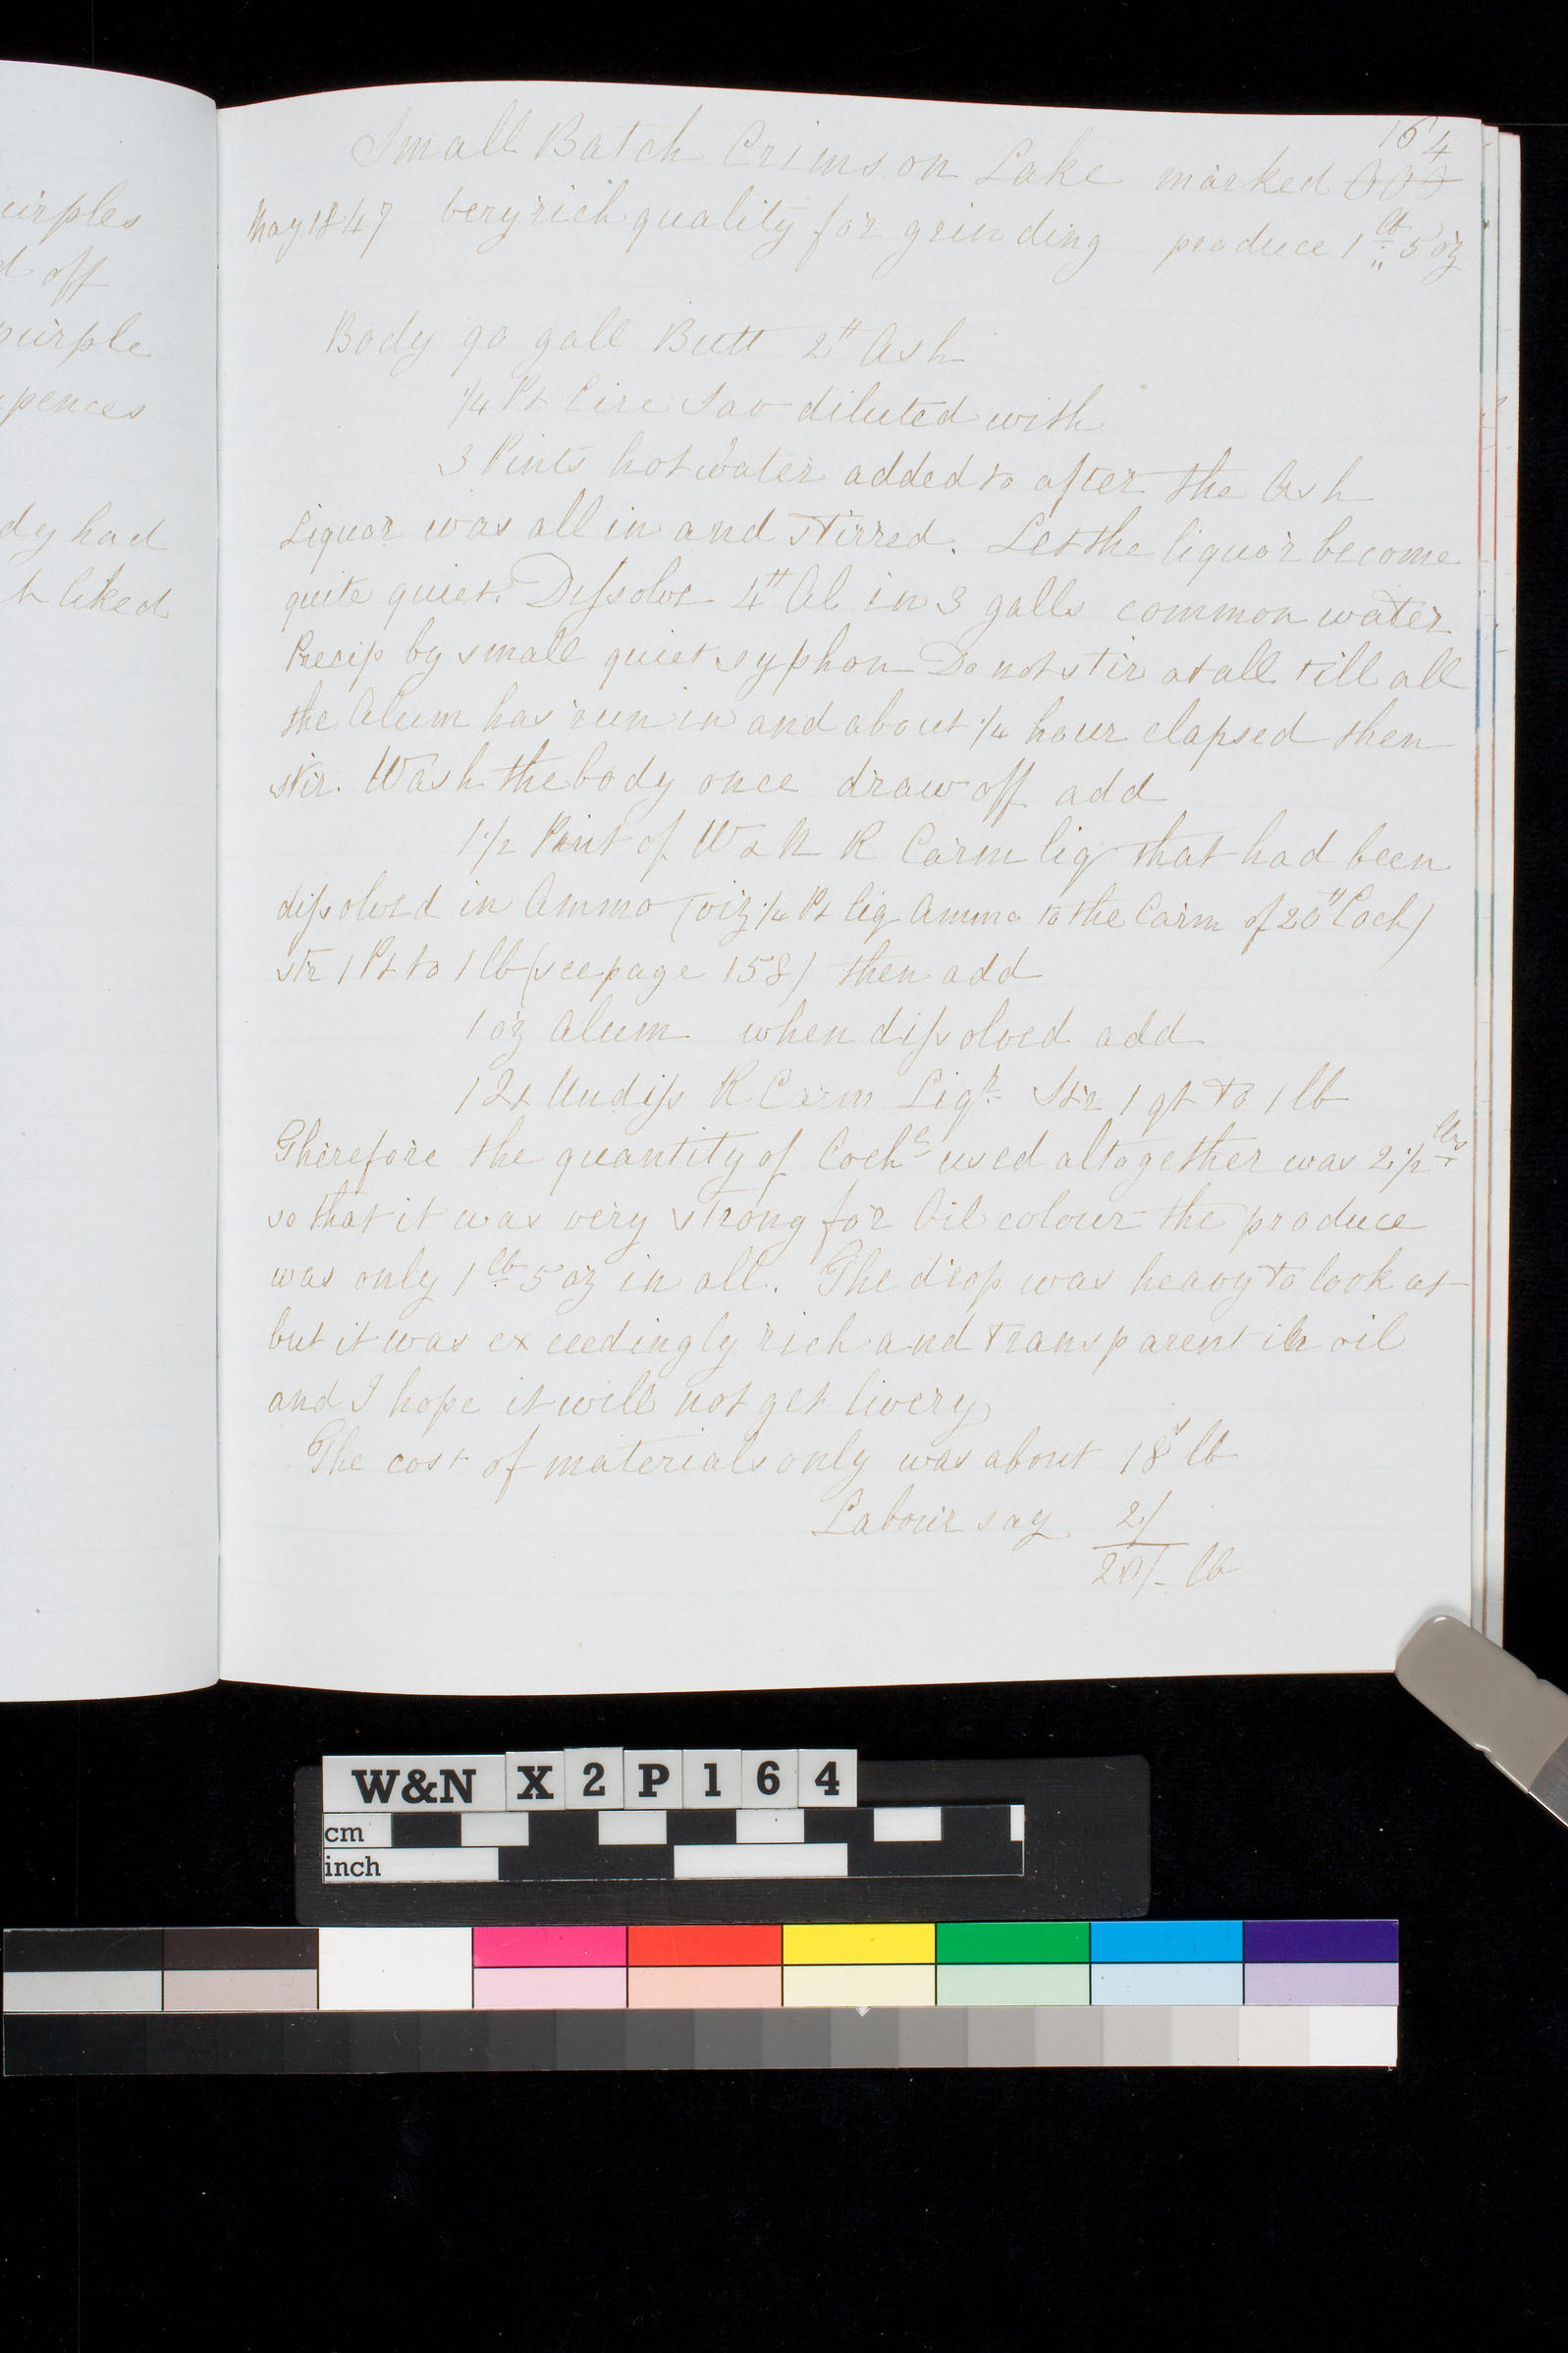 irples
d off
purple
pences
dy had
t liked
164
Small Batch Crimson Lake marked
May 1847 very rich quality for grinding produce 1 lb 5 oz
Body 90 gall Butt 2 lb Ash
1/4 Pt diluted with
3 Pints hot water added to after the Ash
Liquor was all in and stirred. Let the liquor become
quite quiet. Dissolve 4 lb Al in 3 galls common water
Precip by small quiet syphon Do not stir at all till all
the Alum has run in and about 1/4 hour elapsed then
stir. Wash the body once draw off add
1 1/2 Pint of W & N R Carm liq that had been
dissolved in Ammo (viz 1/4 Pt liq Ammo to the Carm of 20 lb Coch)
str 1 Pt to 1 lb (see page 158) then add
1 oz Alum when dissolved add
1 Qt Undiss R Carm Liqr Str 1 qt to 1 lb
Therefore the quantity of Coche used altogether was 2 1/2 lbs
so that it was very strong for Oil colour the produce
was only 1 lb 5 oz in all. The drop was heavy to look at
but it was exceedingly rich and transparent in oil
and I hope it will not get livery
The cost of materials only was about 18s lb
Labour say 2/
20/- lb
W&N X2P164
cm
inch